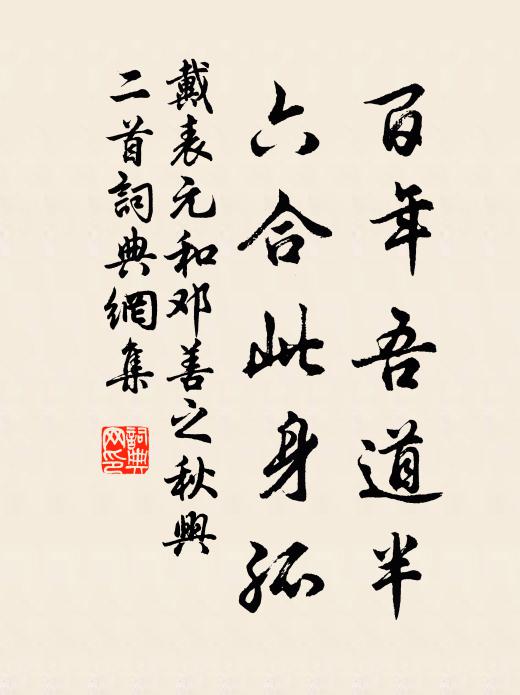 百年吾道半
六合此身孤
戴表元和邓善之秋興
二首詞典網集
詞典
网印